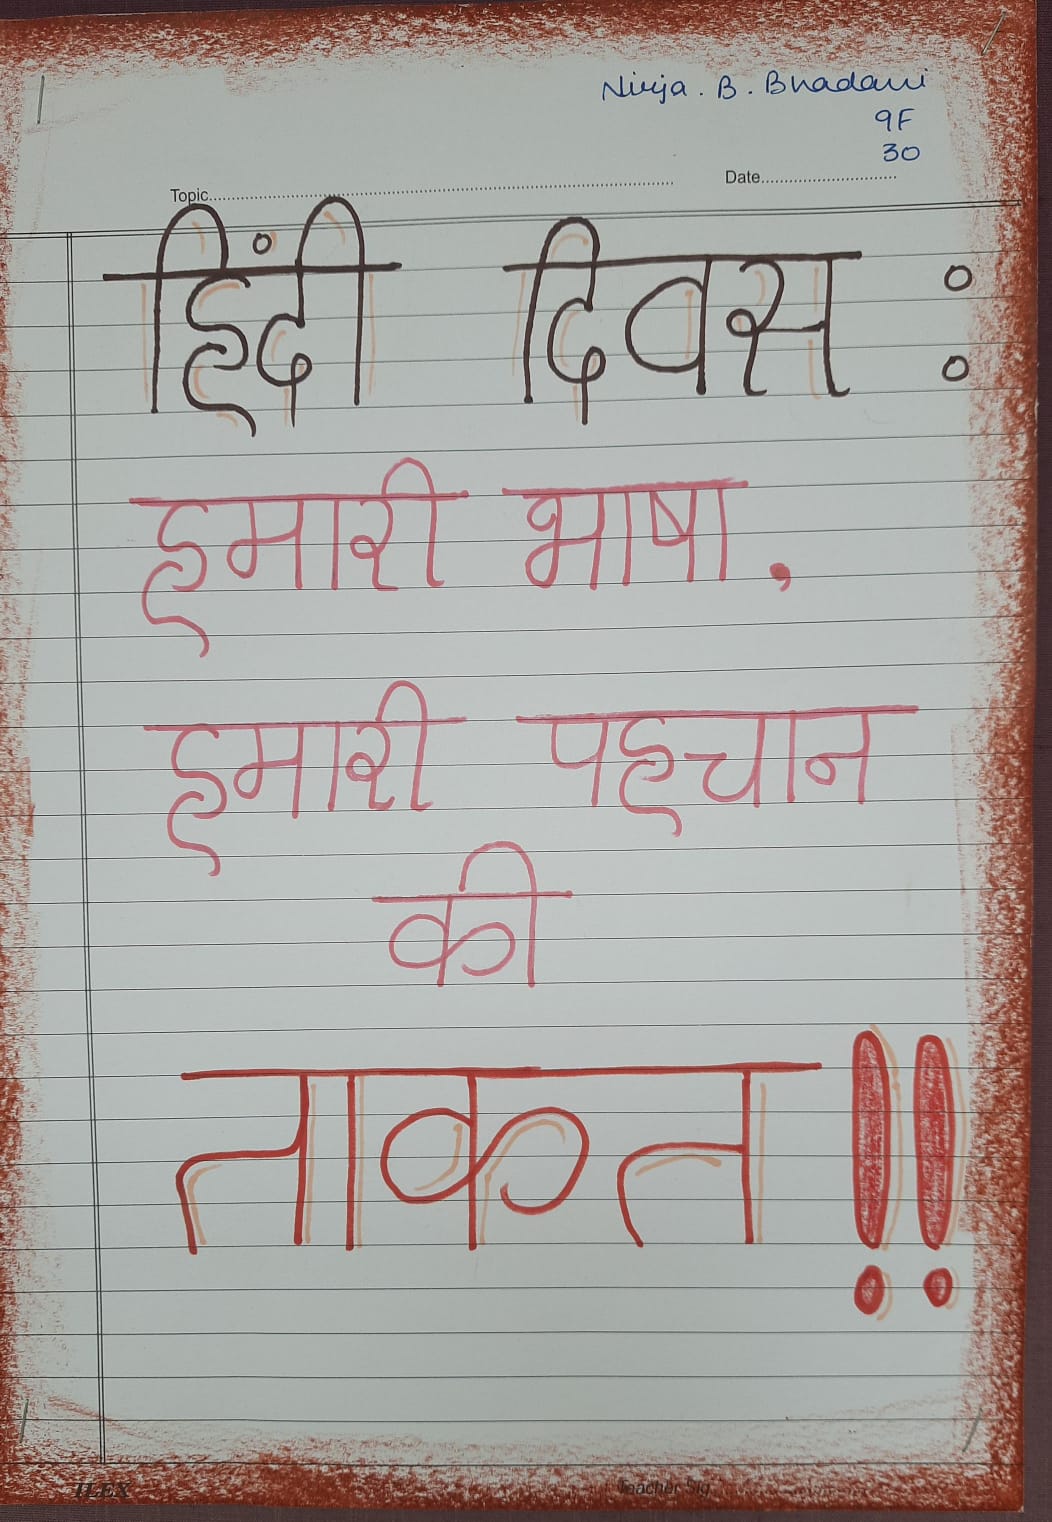 Nirja. B. Bhadani
9F
30
Topic
Date
हिंदी दिवस :
हमारी भाषा,
हमारी पहचान
की
ताकत !!
ILEX
Teacher Sig